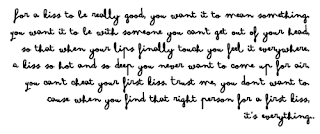 for a kiss to be really good, you want it to mean something.
you want it to be with someone you can't get out of your head,
so that when your lips finally touch you feel it everywhere.
a kiss so hot and so deep you never want to come up for air.
you can't cheat your first kiss. trust me, you don't want to
cause when you find that right person for a first kiss,
it's everything..